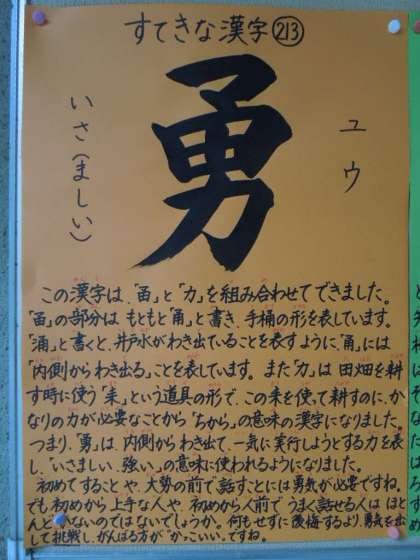 すてきな漢字 213
勇
ユウ
いさ(ましい)
この漢字は、「甬」と「力」を組み合わせてできました。
「甬」の部分は もともと「甬」と書き、手桶の形を表しています。
「涌」と書くと、井戸水がわき出ていることを表すように、「甬」には
「内側からわき出る」ことを表しています。また「力」は 田畑を耕
す時に使う「耒」という道具の形で、この耒を使って耕すのに、か
なりの力が必要なことから「ちから」の意味の漢字になりました。
つまり、「勇」は、内側からわき出て、一気に実行しようとする力を表
し、「いさましい、強い」の意味に使われるようになりました。
初めてすることや、大勢の前で話すことには勇気が必要ですね。
でも初めから上手な人や、初めから人前で うまく話せる人は ほと
んどいないのではないでしょうか。何もせずに後悔するより、勇気を出
して挑戦し、がんばる方が「かっこいい」ですね。